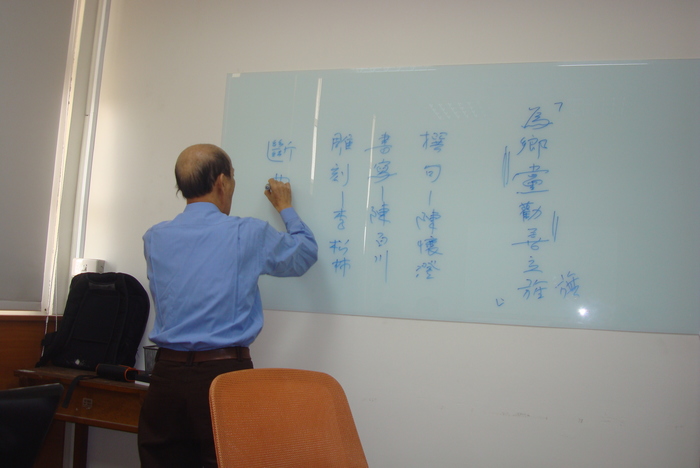 「為鄉黨勸善立旌」
旌
撰句-陳懷澄
書寫-陳百川
雕刻-李松林
斷